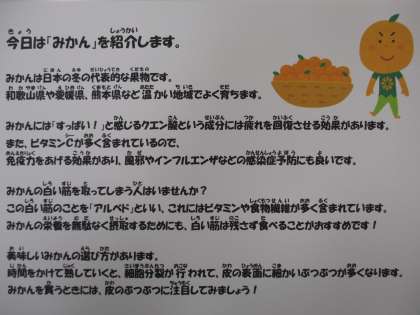 今日は「みかん」を紹介します。
みかんは日本の冬の代表的な果物です。
和歌山県や愛媛県、熊本県など温かい地域でよく育ちます。
みかんには「すっぱい！」と感じるクエン酸という成分には疲れを回復させる効果があります。
また、ビタミンCが多く含まれているので、
免疫力をあげる効果があり、風邪やインフルエンザなどの感染症予防にも良いです。
みかんの白い筋を取ってしまう人はいませんか？
この白い筋のことを「アルベド」といい、これにはビタミンや食物繊維が多く含まれています。
みかんの栄養を無駄なく摂取するためにも、白い筋は残さず食べることがおすすめです！
美味しいみかんの選び方があります。
時間をかけて熟していくと、細胞分裂が行われて、皮の表面に細かいぶつぶつが多くなります。
みかんを買うときには、皮のぶつぶつに注目してみましょう！